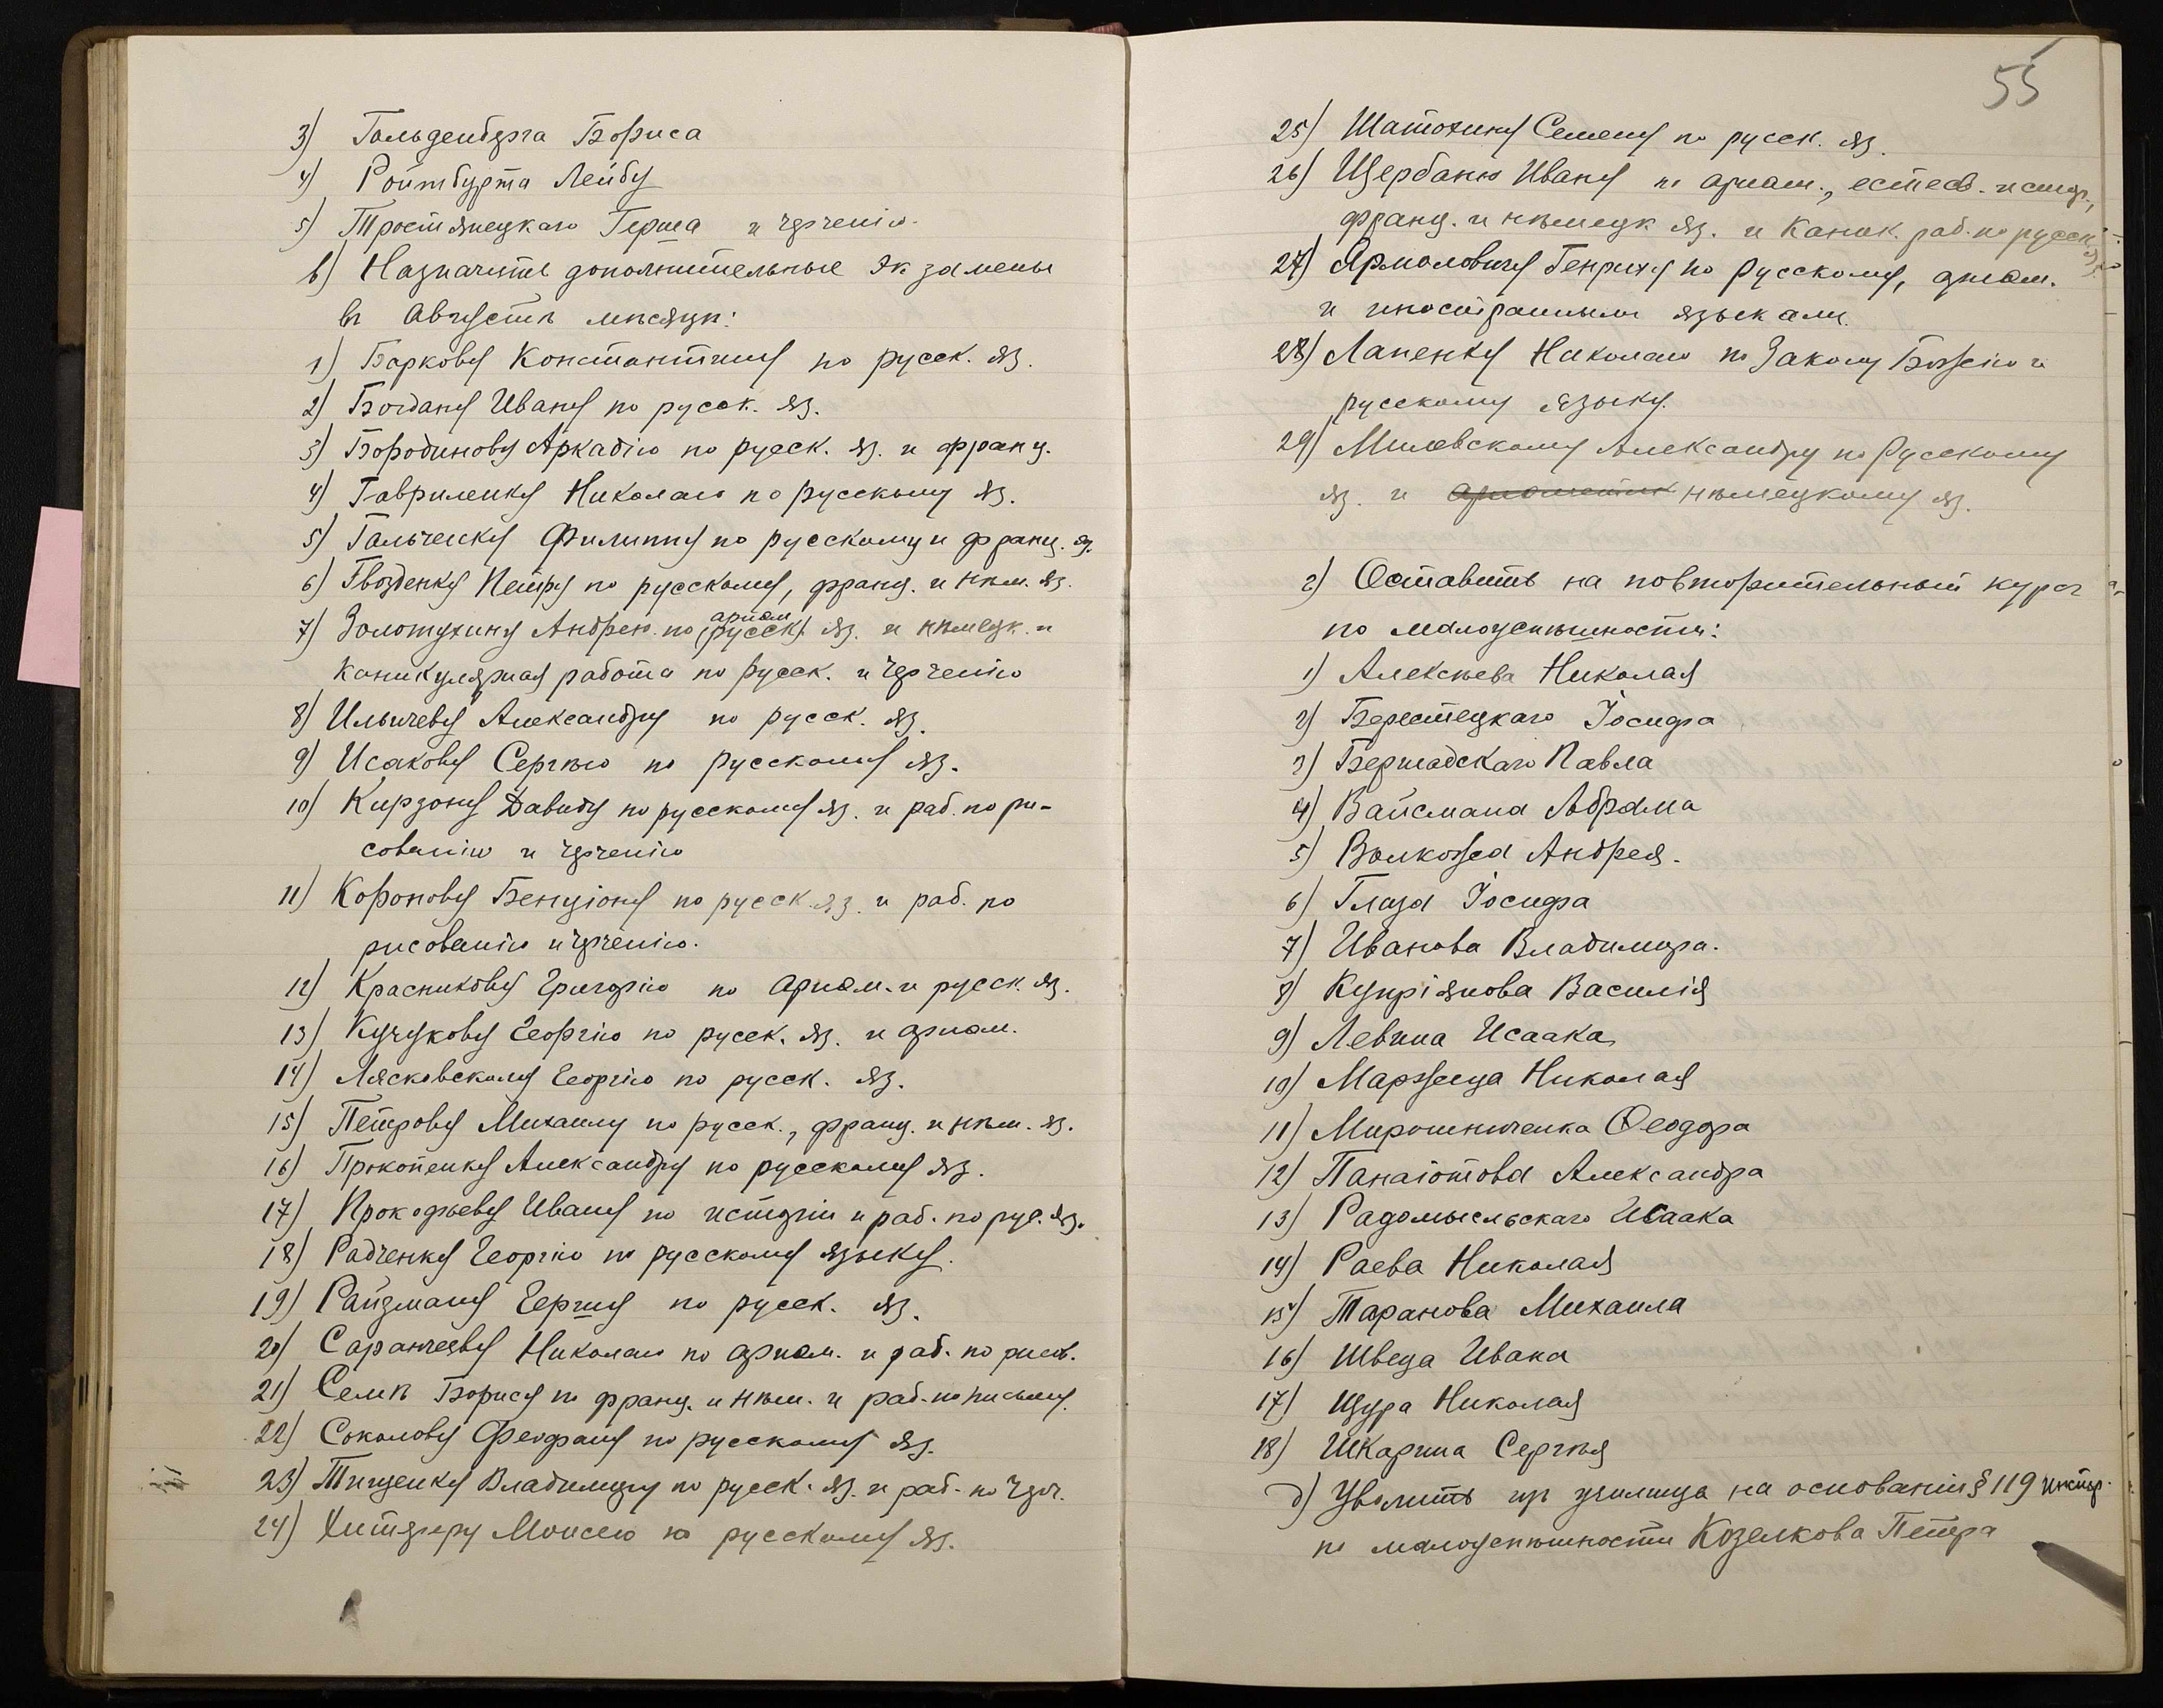 3) Гольденберга Бориса
4) Ройтбурта Лейбу
5) Тростянецкаго Герша и черченію.
в) Назначить дополнительные экзамены
въ Августѣ мѣсяцѣ:
1) Баркову Константину по русск. яз.
2) Богдану Ивану по русск. яз.
3) Бородинову Аркадію по русск. яз. и франц.
4) Гавриленку Николаю по русскому яз.
5) Гальченку Филиппу по русскому и франц. яз.
6) Гвозденку Петру по русскому, франц. и нѣм. яз.
ариѳм.
7) Золотухину Андрею по (русск.) яз. и нѣмецк. и
каникулярная работа по русск. и черченію
8) Ильичеву Александру по русск. яз.
9) Исакову Сергѣю по русскому яз.
10) Кирзону Давиду по русскому яз. и раб. по ри-
сованію и черченію
11) Коропову Бенціону по русск. яз. и раб. по
рисованію и черченію.
12) Красникову Григорію по ариѳм. и русск. яз.
13) Кучукову Георгію по русск. яз. и ариѳм.
14) Лясковскому Георгію по русск. яз.
15) Петрову Михаилу по русск., франц. и нѣм. яз.
16) Прокопенку Александру по русскому яз.
17) Прокофьеву Ивану по исторіи и раб. по рус. яз.
18) Радченку Георгію по русскому языку.
19) Райзману Гершу по русск. яз.
20) Саранчеву Николаю по ариѳм. и раб. по рисов.
21) Семпъ Борису по франц. и нѣм. и раб. по письму.
22) Соколову Феофану по русскому яз.
23) Тищенку Владимиру по русск. яз. и раб. по черч.
24) Хитереру Моисею по русскому яз.
55
25) Шатохину Семену по русск. яз.
26) Щербаню Ивану по ариѳм., естеств. истор.,
франц. и нѣмецк. яз. и каник. раб. по русск. яз.
27) Ярмоловичу Генриху по русскому, ариѳм.
и иностраннымъ языкамъ.
28) Лапенку Николаю по Закону Божію и
русскому языку.
29) Милевскому Александру по русскому
яз. и ариѳметикѣ нѣмецкому яз.
г) Оставить на повторительный курсъ
по малоуспѣшности:
1) Алексѣева Николая
2) Берестецкаго Іосифа
3) Бершадскаго Павла
4) Вайсмана Абрама
5) Волкожа Андрея.
6) Глаза Іосифа
7) Иванова Владимира.
8) Купріянова Василія
9) Левина Исаака
10) Маржеца Николая
11) Мирошниченка Ѳеодора
12) Панаіотова Александра
13) Радомысльскаго Исаака
14) Раева Николая
15) Таранова Михаила
16) Швеца Ивана
17) Щура Николая
18) Шкарина Сергѣя
д) Уволить изъ училища на основаніи § 119 инстр.
по малоуспѣшности Козелкова Петра